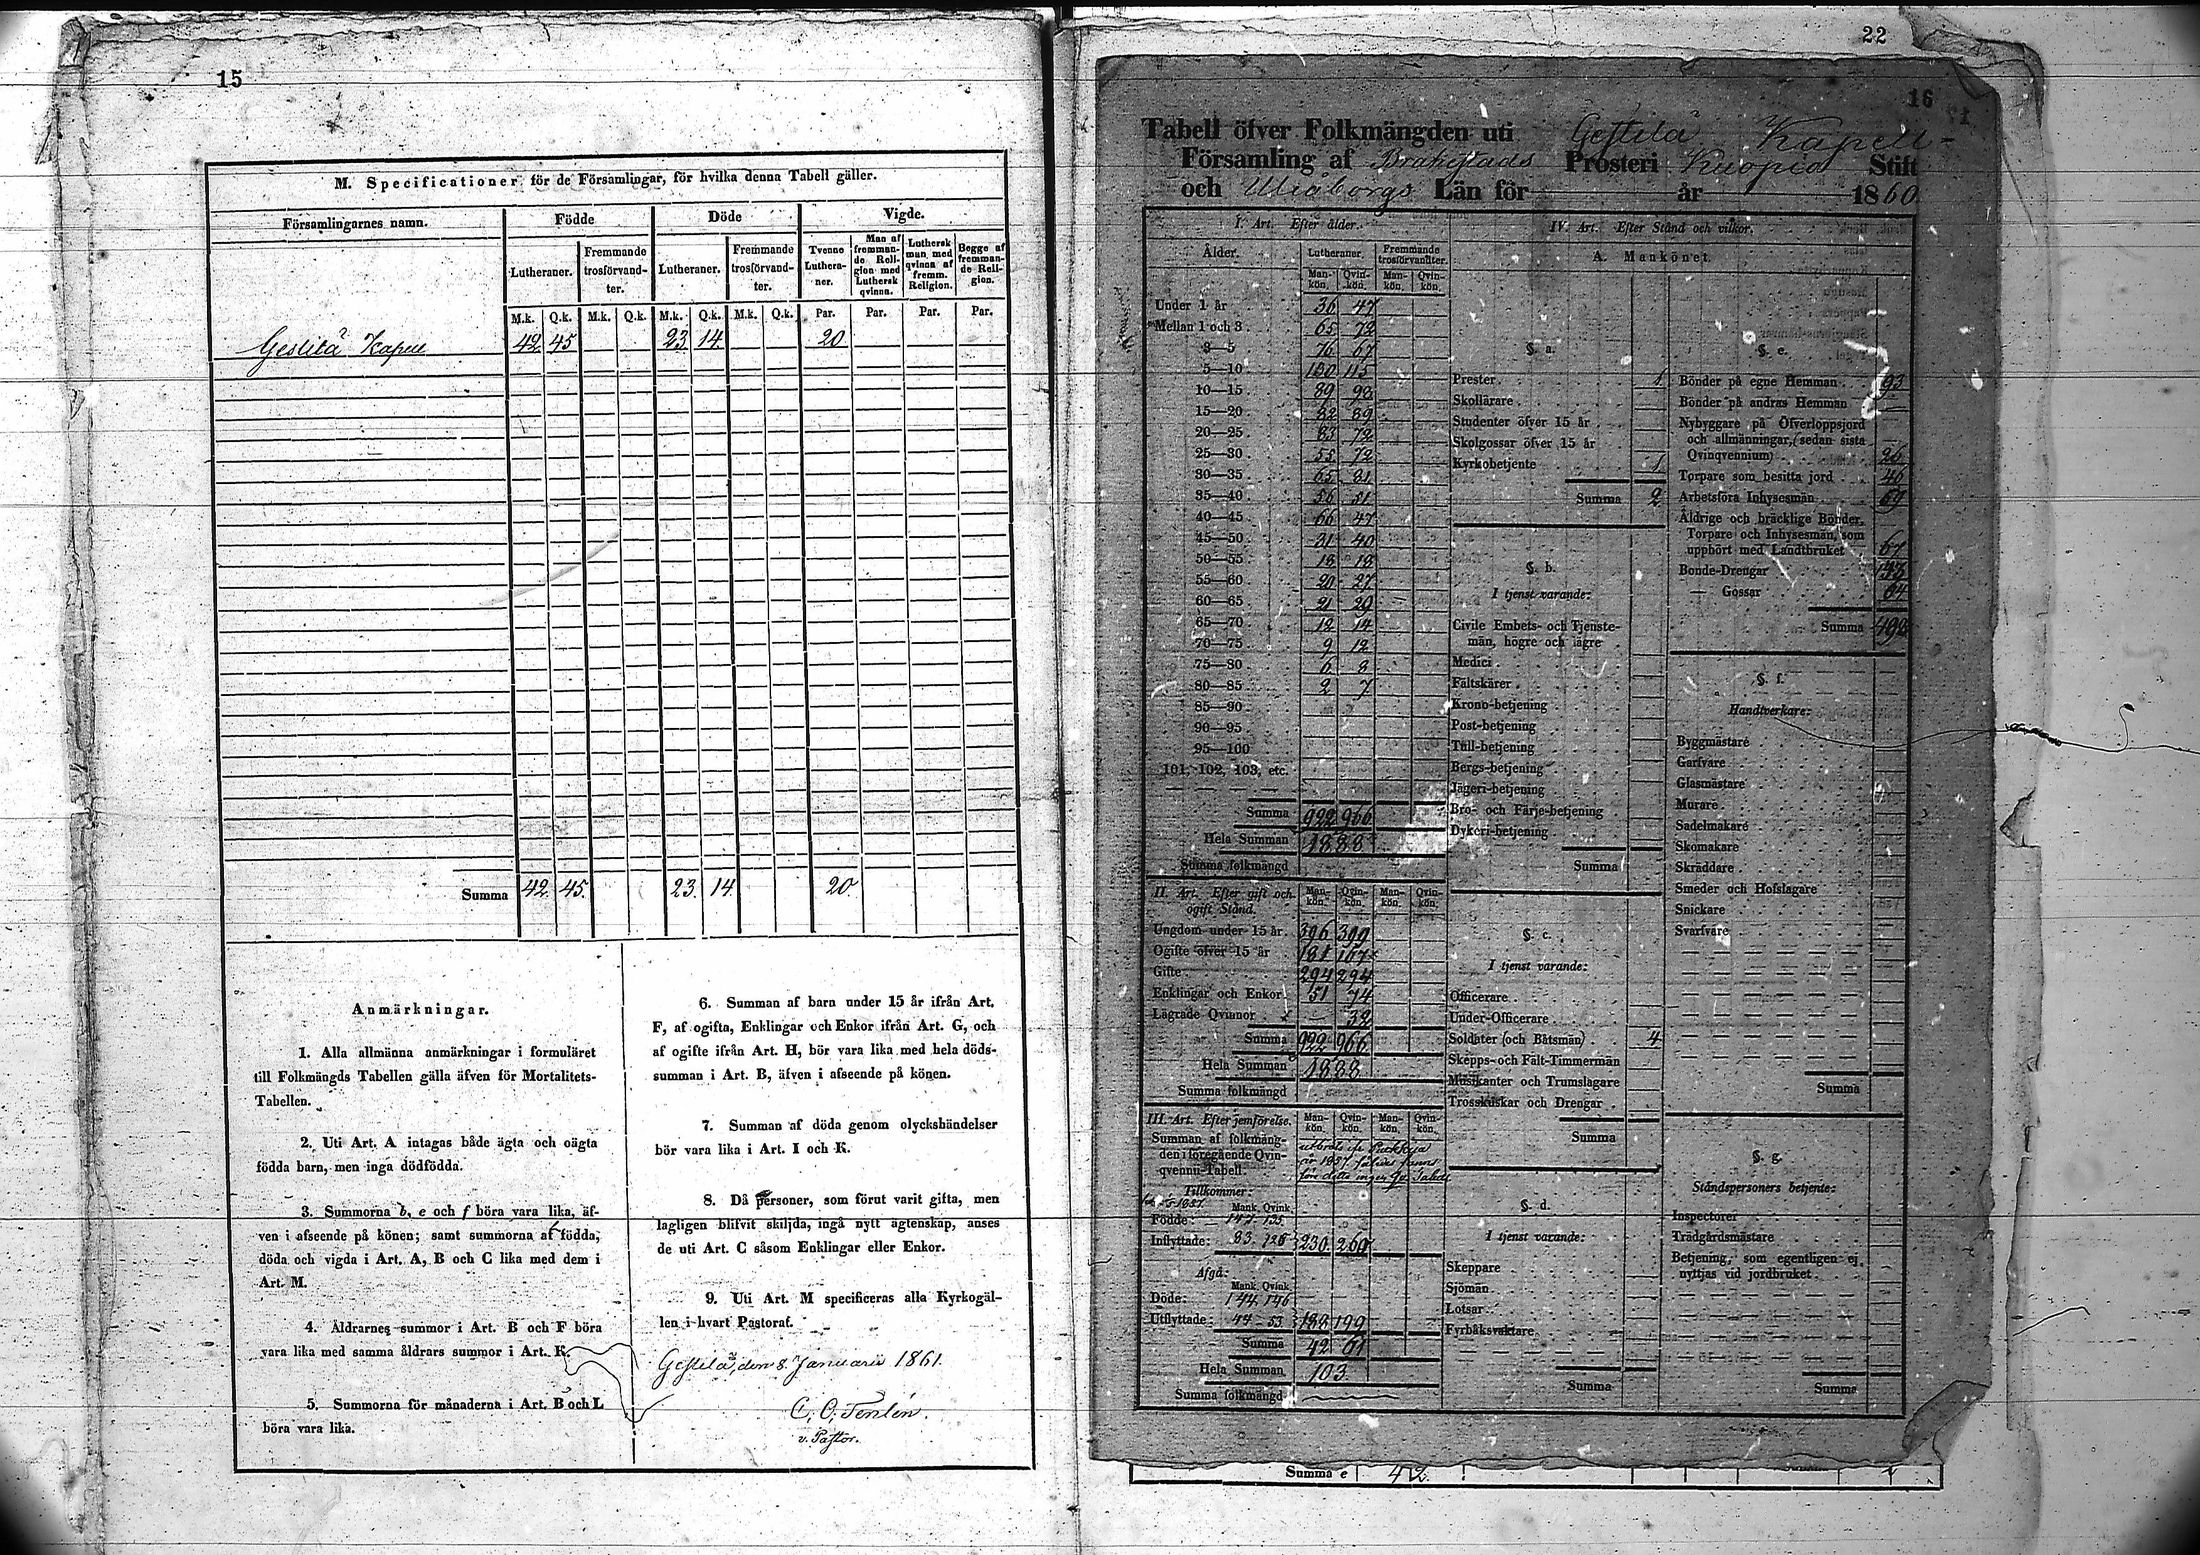 15
M. Specificationer för de Församlingar, för hvilka denna Tabell gäller.
Församlingarnes namn. Födde Döde Vigde.
Lutheraner. Fremmande trosförvandter. Lutheraner. Fremmande trosförvandter. Tvenne Lutheraner. Man af fremmande Religion med Luthersk qvinna. Luthersk man med qvinna af fremm. Religion. Begge af fremmande Religion.
M.k. Q.k. M.k. Q.k. M.k. Q.k. M.k. Q.k. Par. Par. Par. Par.
Gestilä Kapell 42 45 23 14 20
Summa 42 45 23 14 20
Anmärkningar.
1. Alla allmänna anmärkningar i formuläret
till Folkmängds Tabellen gälla äfven för Mortalitets-
Tabellen.
2. Uti Art. A intagas både ägta och oägta
födda barn, men inga dödfödda.
3. Summorna b, e och f böra vara lika, äf-
ven i afseende på könen; samt summorna af födda,
döda och vigda i Art. A, B och C lika med dem i
Art. M.
4. Åldrarnes summor i Art. B och F böra
vara lika med samma åldrars summor i Art. K.
5. Summorna för månaderna i Art. B och L
böra vara lika.
6. Summan af barn under 15 år ifrån Art.
F, af ogifta, Enklingar och Enkor ifrån Art. G, och
af ogifte ifrån Art. H, bör vara lika med hela döds-
summan i Art. B, äfven i afseende på könen.
7. Summan af döda genom olyckshändelser
bör vara lika i Art. I och K.
8. Då personer, som förut varit gifta, men
lagligen blifvit skiljda, ingå nytt ägtenskap, anses
de uti Art. C såsom Enklingar eller Enkor.
9. Uti Art. M specificeras alla Kyrkogäl-
len i hvart Pastorat.
Gestilä, den 8 Januarii 1861.
v. Pastor.
22
16
Tabell öfver Folkmängden uti Gestilä Kapell-
Församling af Brahestads Prosteri Kuopio Stift
och Uleåborgs Län för år 1860
I. Art. Efter ålder.
Ålder. Lutheraner. Fremmande trosförvandter.
Man-kön. Qvin-kön. Man-kön. Qvin-kön.
Under 1 år 36 47
Mellan 1 och 3 65 72
3—5 76 67
5—10 100 115
10—15 89 98
15—20 82 89
20—25 83 72
25—30 55 72
30—35 65 81
35—40 56 51
40—45 66 47
45—50 31 40
50—55 18 18
55—60 20 27
60—65 21 29
65—70 12 14
70—75 9 12
75—80 6 8
80—85 2 7
85—90
90—95
95—100
101, 102, 103, etc.
Summa 922 966
Hela Summan 1888
Summa folkmängd
II. Art. Efter gift och ogift Stånd. Man-kön. Qvin-kön. Man-kön. Qvin-kön.
Ungdom under 15 år 396 399
Ogifte öfver 15 år 181 167
Gifte 294 294
Enklingar och Enkor 51 74
Lägrade Qvinnor — 32
Summa 922 966
Hela Summan 1888
Summa folkmängd
III. Art. Efter jemförelse. Man-kön. Qvin-kön. Man-kön. Qvin-kön.
Summan af folkmäng-
den i föregående Qvin-
qvennii-Tabell.
Tillkommer:
Mank. Qvink.
Födde: 147 135
Inflyttade: 83 125 230 260
Afgå:
Mank. Qvink.
Döde: 144 146
Utflyttade: 44 53 188 199
Summa 42 61
Hela Summan 103.
Summa folkmängd
IV. Art. Efter Stånd och vilkor.
A. Mankönet.
§. a.
Prester 1
Skollärare
Studenter öfver 15 år
Skolgossar öfver 15 år
Kyrkobetjente 1
Summa 2
§. b.
I tjenst varande:
Civile Embets- och Tjenste-
män, högre och lägre
Medici
Fältskärer
Krono-betjening
Post-betjening
Tull-betjening
Bergs-betjening
Jägeri-betjening
Bro- och Färje-betjening
Dykeri-betjening
Summa
§. c.
I tjenst varande:
Officerare
Under-Officerare
Soldater (och Båtsmän) 4
Skepps- och Fält-Timmermän
Musikanter och Trumslagare
Trosskuskar och Drengar
Summa
§. d.
I tjenst varande:
Skeppare
Sjömän
Lotsar
Fyrbåksvaktare
Summa
§. e.
Bönder på egne Hemman 93
Bönder på andras Hemman
Nybyggare på Öfverloppsjord
och allmänningar, (sedan sista
Qvinqvennium) 26
Torpare som besitta jord 46
Arbetsföra Inhysesmän 69
Åldrige och bräcklige Bönder,
Torpare och Inhysesmän, som
upphört med Landtbruket 67
Bonde-Drengar
— Gossar 64
Summa 498
§. f.
Handtverkare:
Byggmästare
Garfvare
Glasmästare
Murare
Sadelmakare
Skomakare
Skräddare
Smeder och Hofslagare
Snickare
Svarfvare
Summa
§. g.
Ståndspersoners betjente:
Inspectorer
Trädgårdsmästare
Betjening, som egentligen ej
nyttjas vid jordbruket
Summa
Summa e 42